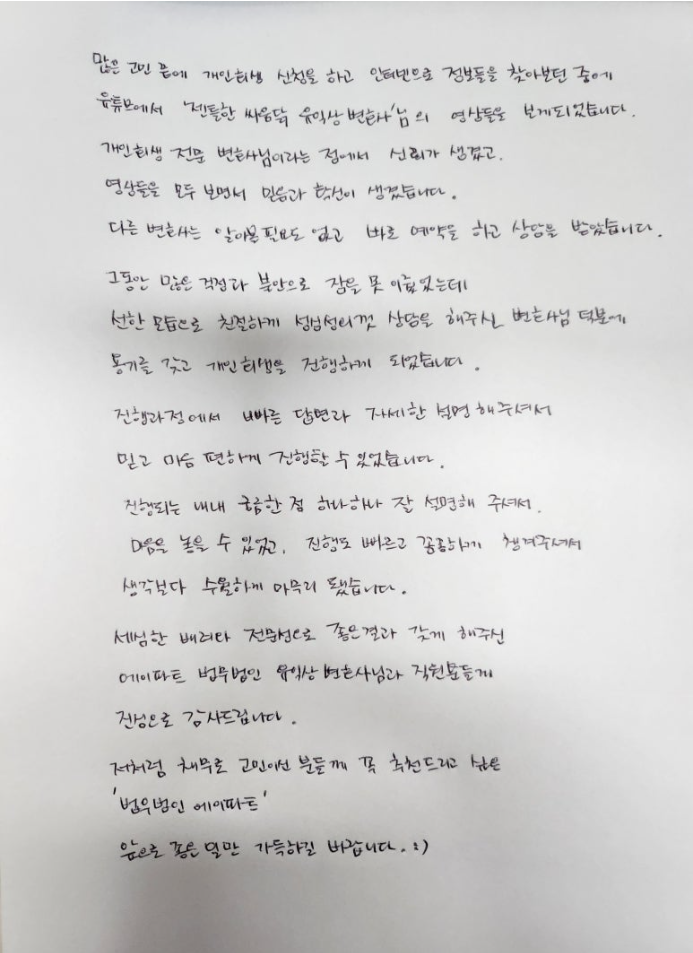 많은 고민 끝에 개인회생 신청을 하고 인터넷으로 정보들을 찾아보던 중에
유튜브에서 '젠틀한 싸움닭 유익상 변호사'님의 영상들을 보게되었습니다.
개인회생 전문 변호사님이라는 점에서 신뢰가 생겼고.
영상들을 모두 보면서 믿음과 확신이 생겼습니다.
다른 변호사는 알아볼 필요도 없고 바로 예약을 하고 상담을 받았습니다.
그동안 많은 걱정과 불안으로 잠을 못 이뤘었는데
선한 모습으로 친절하게 성심성의껏 상담을 해주신 변호사님 덕분에
용기를 갖고 개인회생을 진행하게 되었습니다.
진행과정에서 빠른 답변과 자세한 설명 해주셔서
믿고 마음 편하게 진행할 수 있었습니다.
진행되는 내내 궁금한 점 하나하나 잘 설명해 주셔서.
마음을 놓을 수 있었고, 진행도 빠르고 꼼꼼하게 챙겨주셔서
생각보다 수월하게 마무리 됐습니다.
세심한 배려와 전문성으로 좋은결과 갖게 해주신
에이파트 법무법인 유익상 변호사님과 직원분들께
진심으로 감사드립니다.
저처럼 채무로 고민이신 분들께 꼭 추천드리고 싶은
'법무법인 에이파트'
앞으로 좋은 일만 가득하길 바랍니다. :)